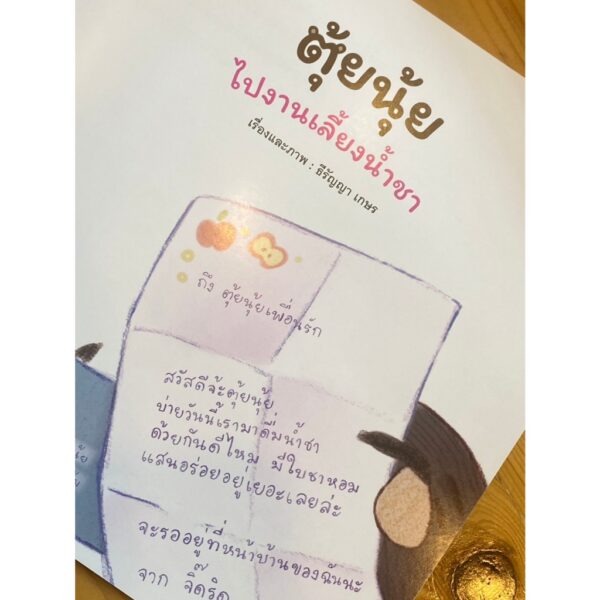 ตุ้ยนุ้ย
ไปงานเลี้ยงน้ำชา
เรื่องและภาพ : ธีรัญญา เกษร
ถึง ตุ้ยนุ้ยเพื่อนรัก
สวัสดีจ้ะตุ้ยนุ้ย
บ่ายวันนี้เรามาดื่มน้ำชา
ด้วยกันดีไหม มีใบชาหอม
แสนอร่อยอยู่เยอะเลยล่ะ
จะรออยู่ที่หน้าบ้านของฉันนะ
จาก จี๊ดริด